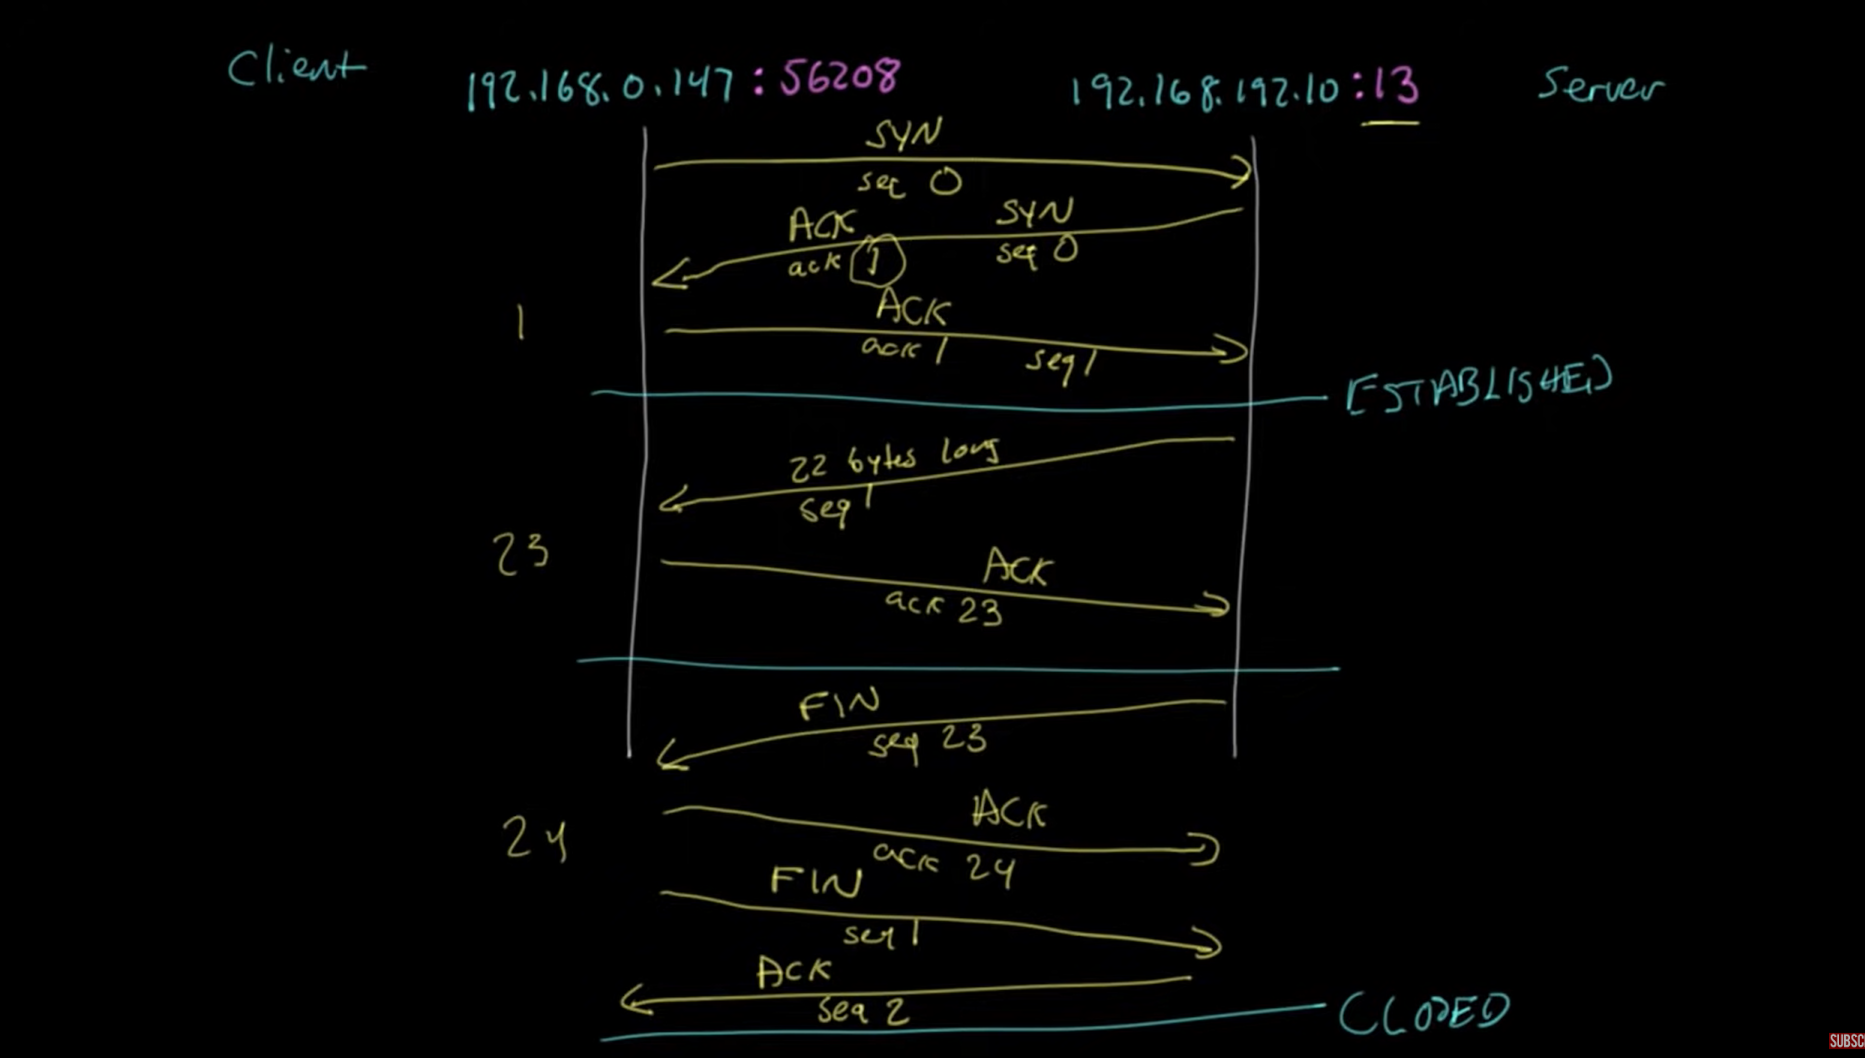 Client 192.168.0.147:56208 192.168.192.10:13 Server
SYN
seq 0
ACK SYN
ack 1 seq 0
1
ACK
ack 1 seq 1
ESTABLISHED
22 bytes long
seq 1
23
ACK
ack 23
FIN
seq 23
24
ACK
ack 24
FIN
seq 1
ACK
seq 2
CLOSED
SUBSC